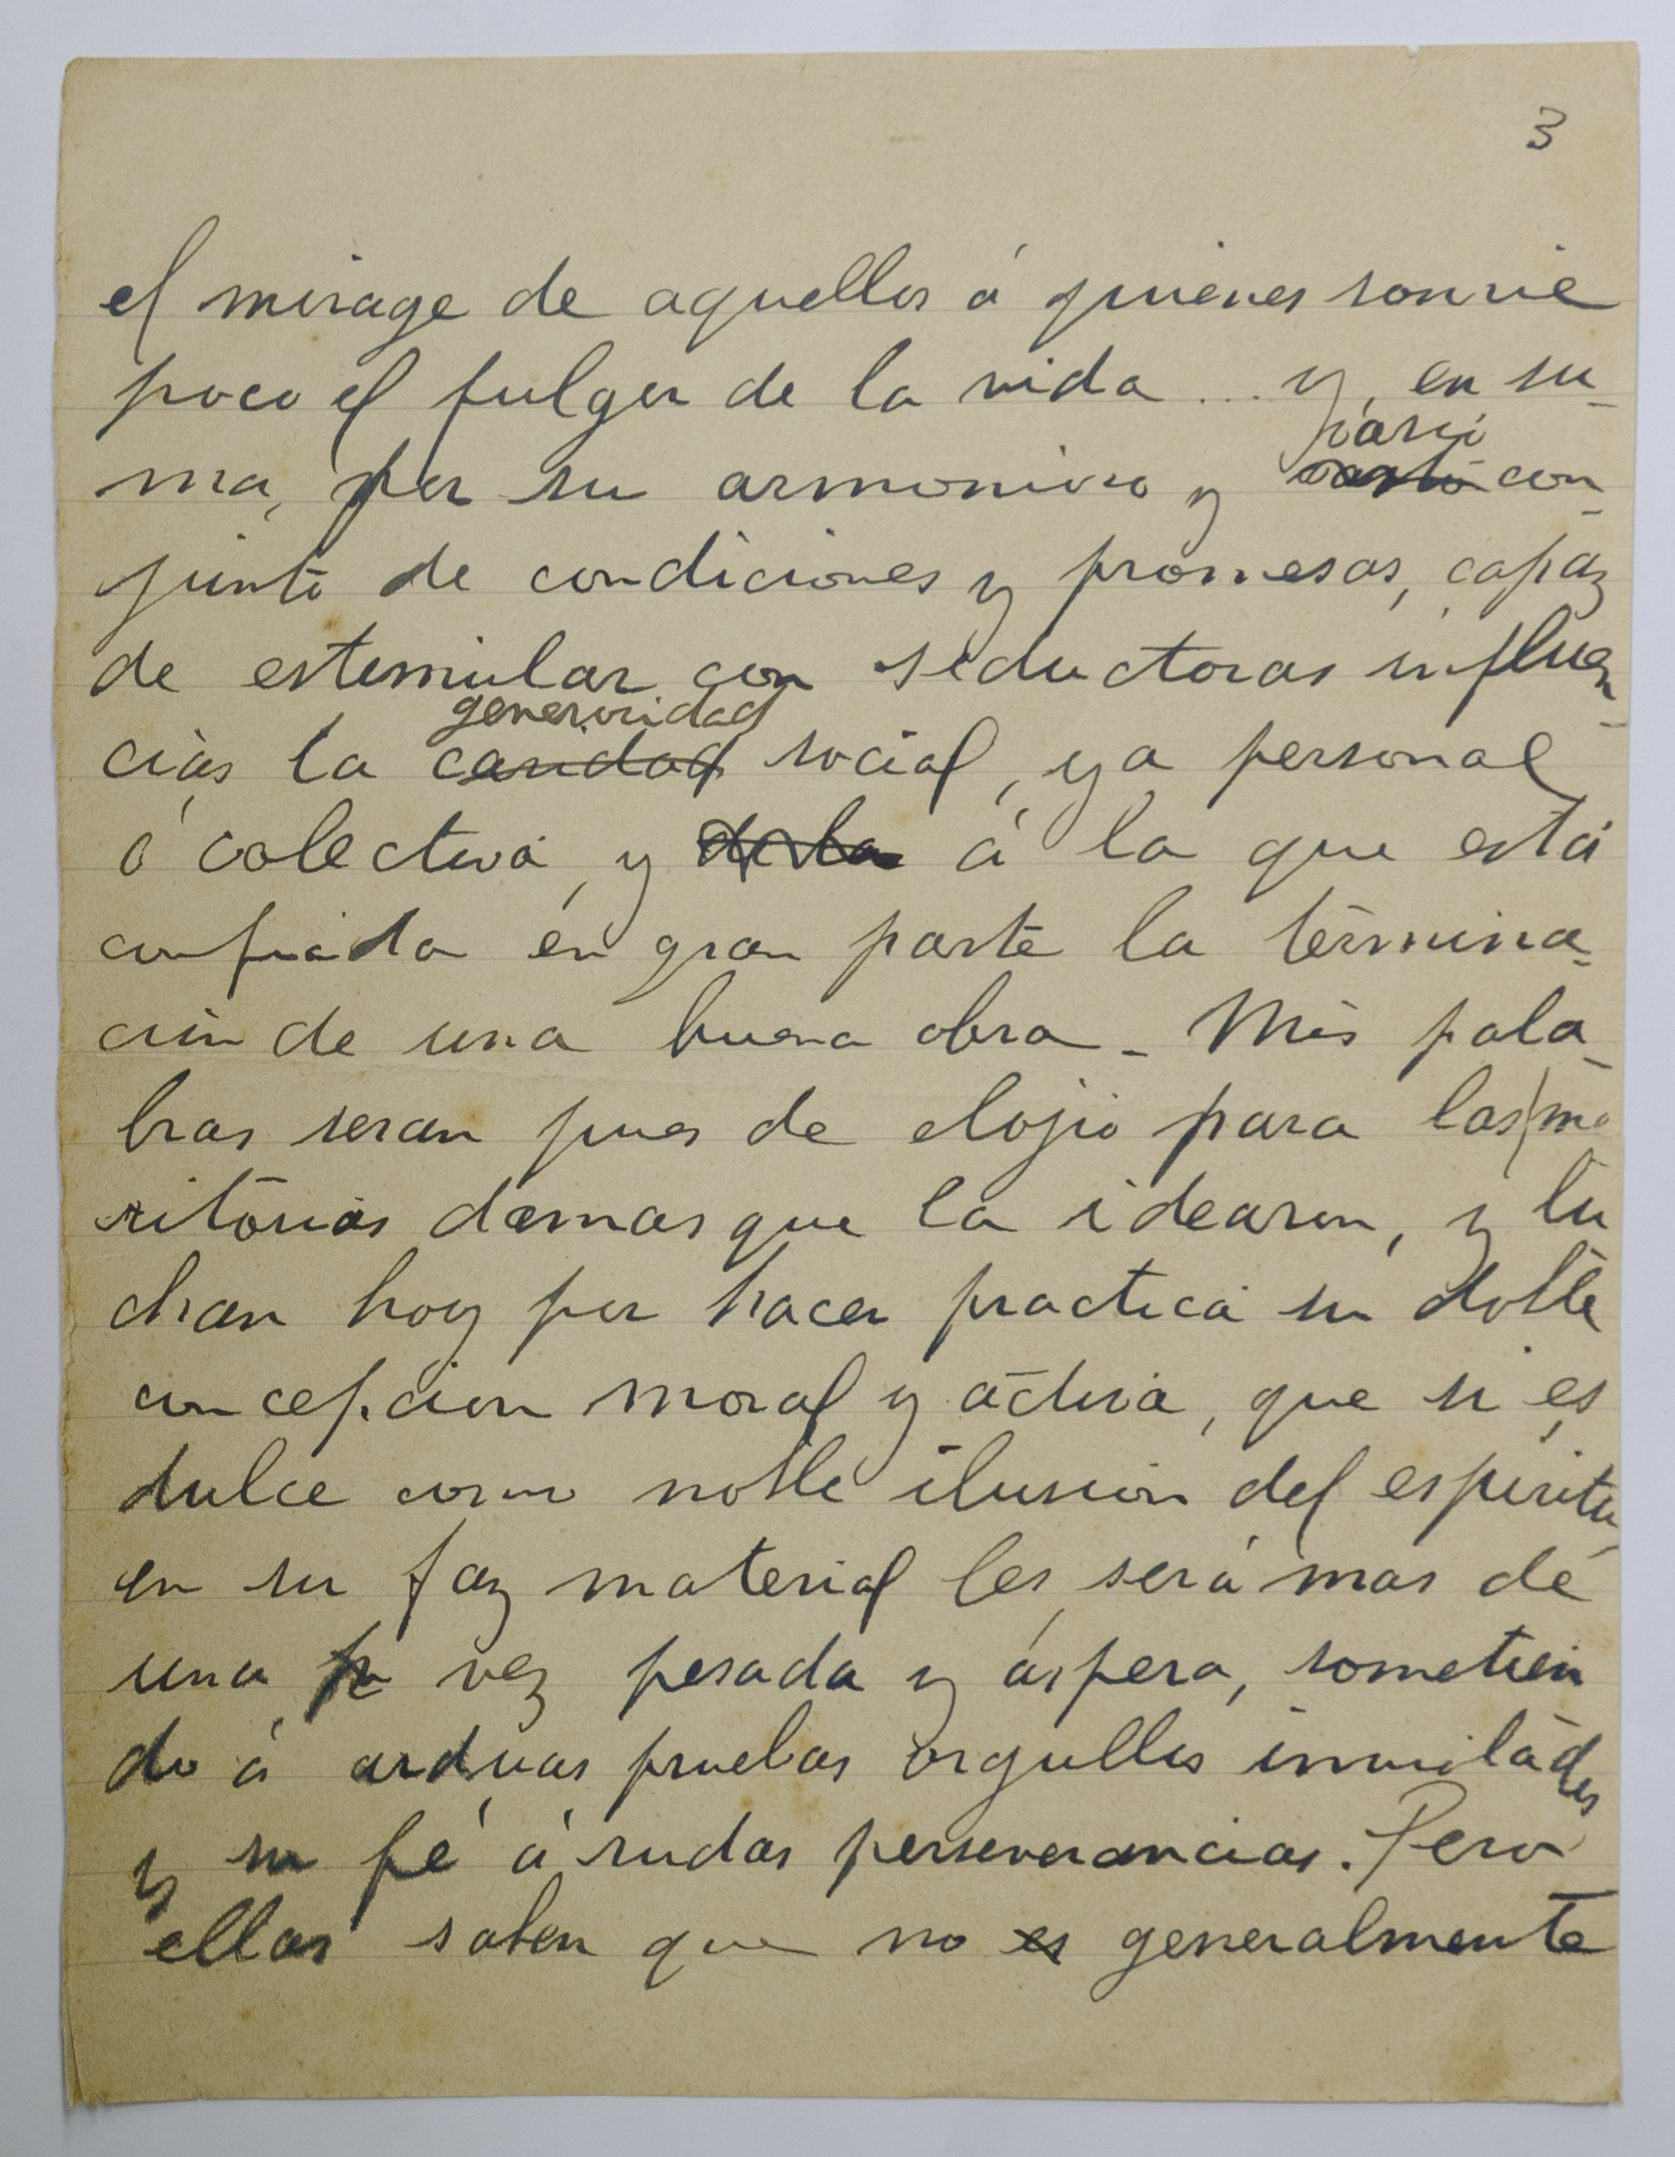 3
el mirage de aquellos á quienes sonrie
poco el fulgor de la vida ... y, en su-
ma, por su armonioso y vasto con-
junto de condiciones y promesas, capaz
de estimular con seductoras influen-
generosidad
cias la caridad social, ya personal
ó colectiva, y de la á la que está
confiada en gran parte la termina-
ción de una buena obra - Mis pala-
bras seran pues de elojio para las me
ritorias damas que la idearon, y lu
chan hoy por hacer practica su doble
concepcion moral y activa, que si es
dulce como noble ilusion del espiritu
en su faz material les será mas de
una vez pesada y áspera, sometien
do á arduas pruebas orgullos inmitados
y su fé á rudas perseverancias. Pero
ellas saben que no es generalmente